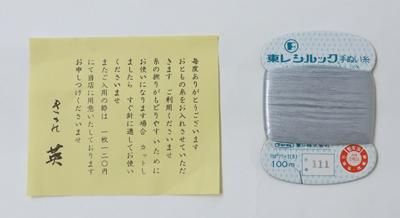 毎度ありがとうございます
おともの糸をお入れさせていただ
きます ご利用くださいませ
糸の撚りがもどりやすいために
お使いになります場合 カットし
ましたら すぐ針に通してお使い
くださいませ
またご入用の節は 一枚一二〇円
にて当店に用意いたしております
お申しつけくださいませ
きもの 英
東レシルック手ぬい糸
100m
111